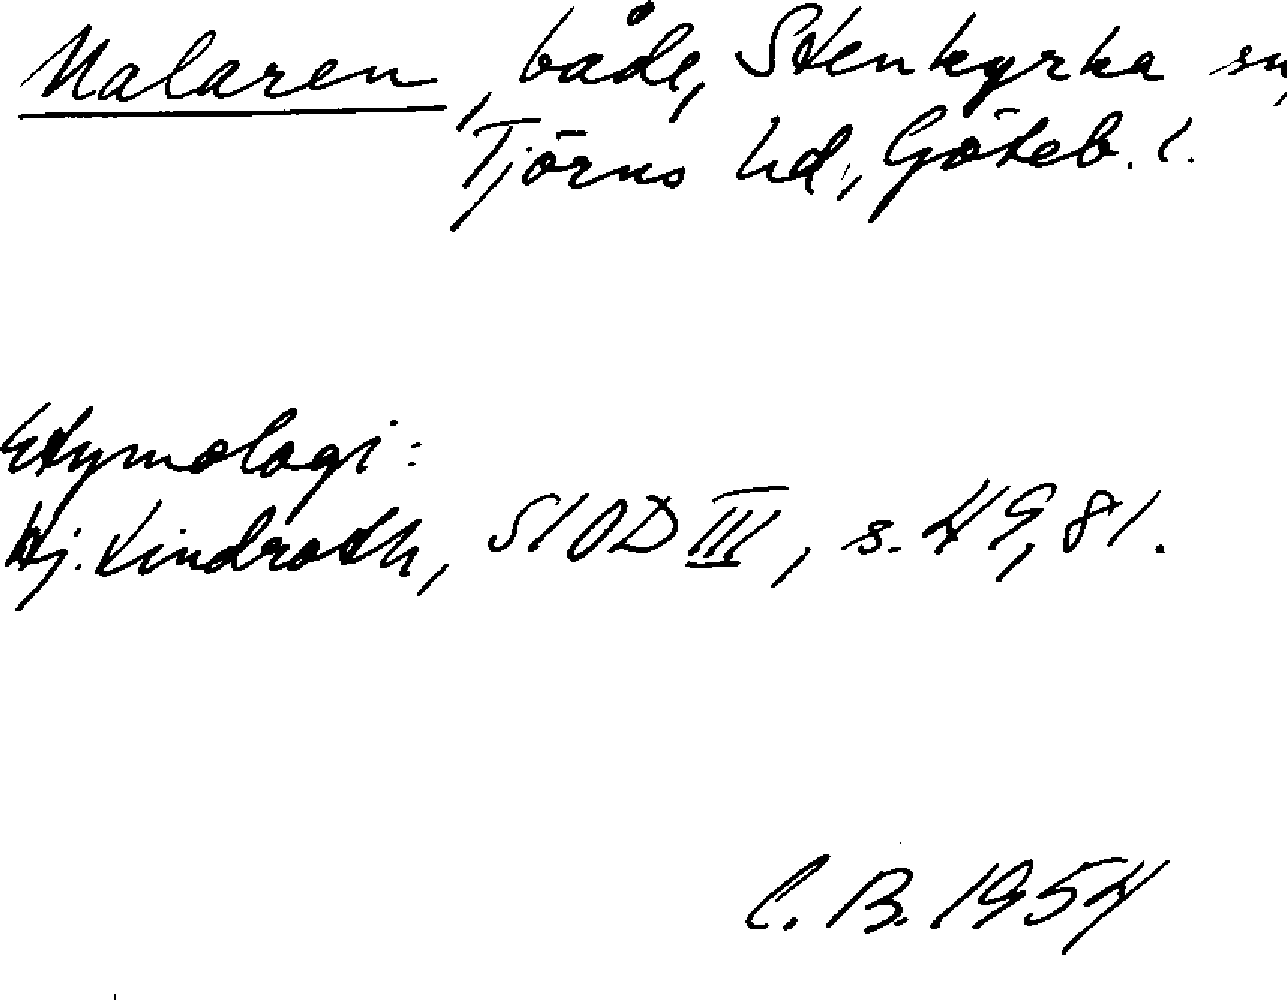 Malaren, både, Stenkyrka sn,
Tjörns hd., Göteb. l.
Etymologi:
Hj. Lindroth, SIOD III, s. 49, 81.
C. B. 1954